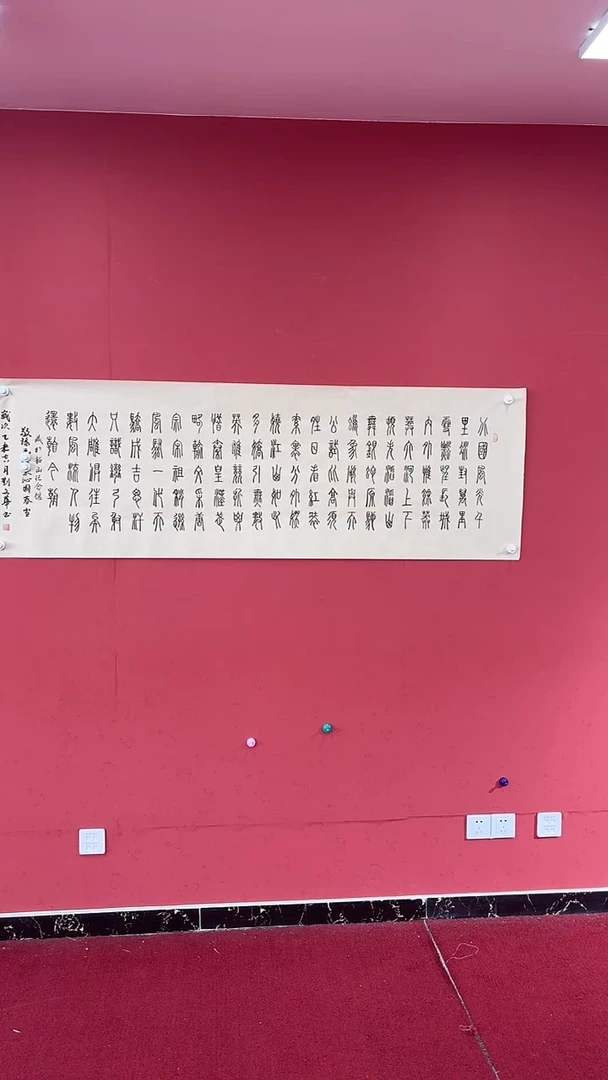 北國風光千
里冰封萬里
雪飄望長城
内外惟餘莽
莽大河上下
頓失滔滔山
舞銀蛇原馳
蠟象欲與天
公試比高須
晴日看紅裝
素裹分外妖
嬈江山如此
多嬌引無數
英雄競折腰
惜秦皇漢武
略輸文采唐
宗宋祖稍遜
風騷一代天
驕成吉思汗
只識彎弓射
大雕俱往矣
數風流人物
還看今朝
沁園春雪
歲次乙未六月劉文書